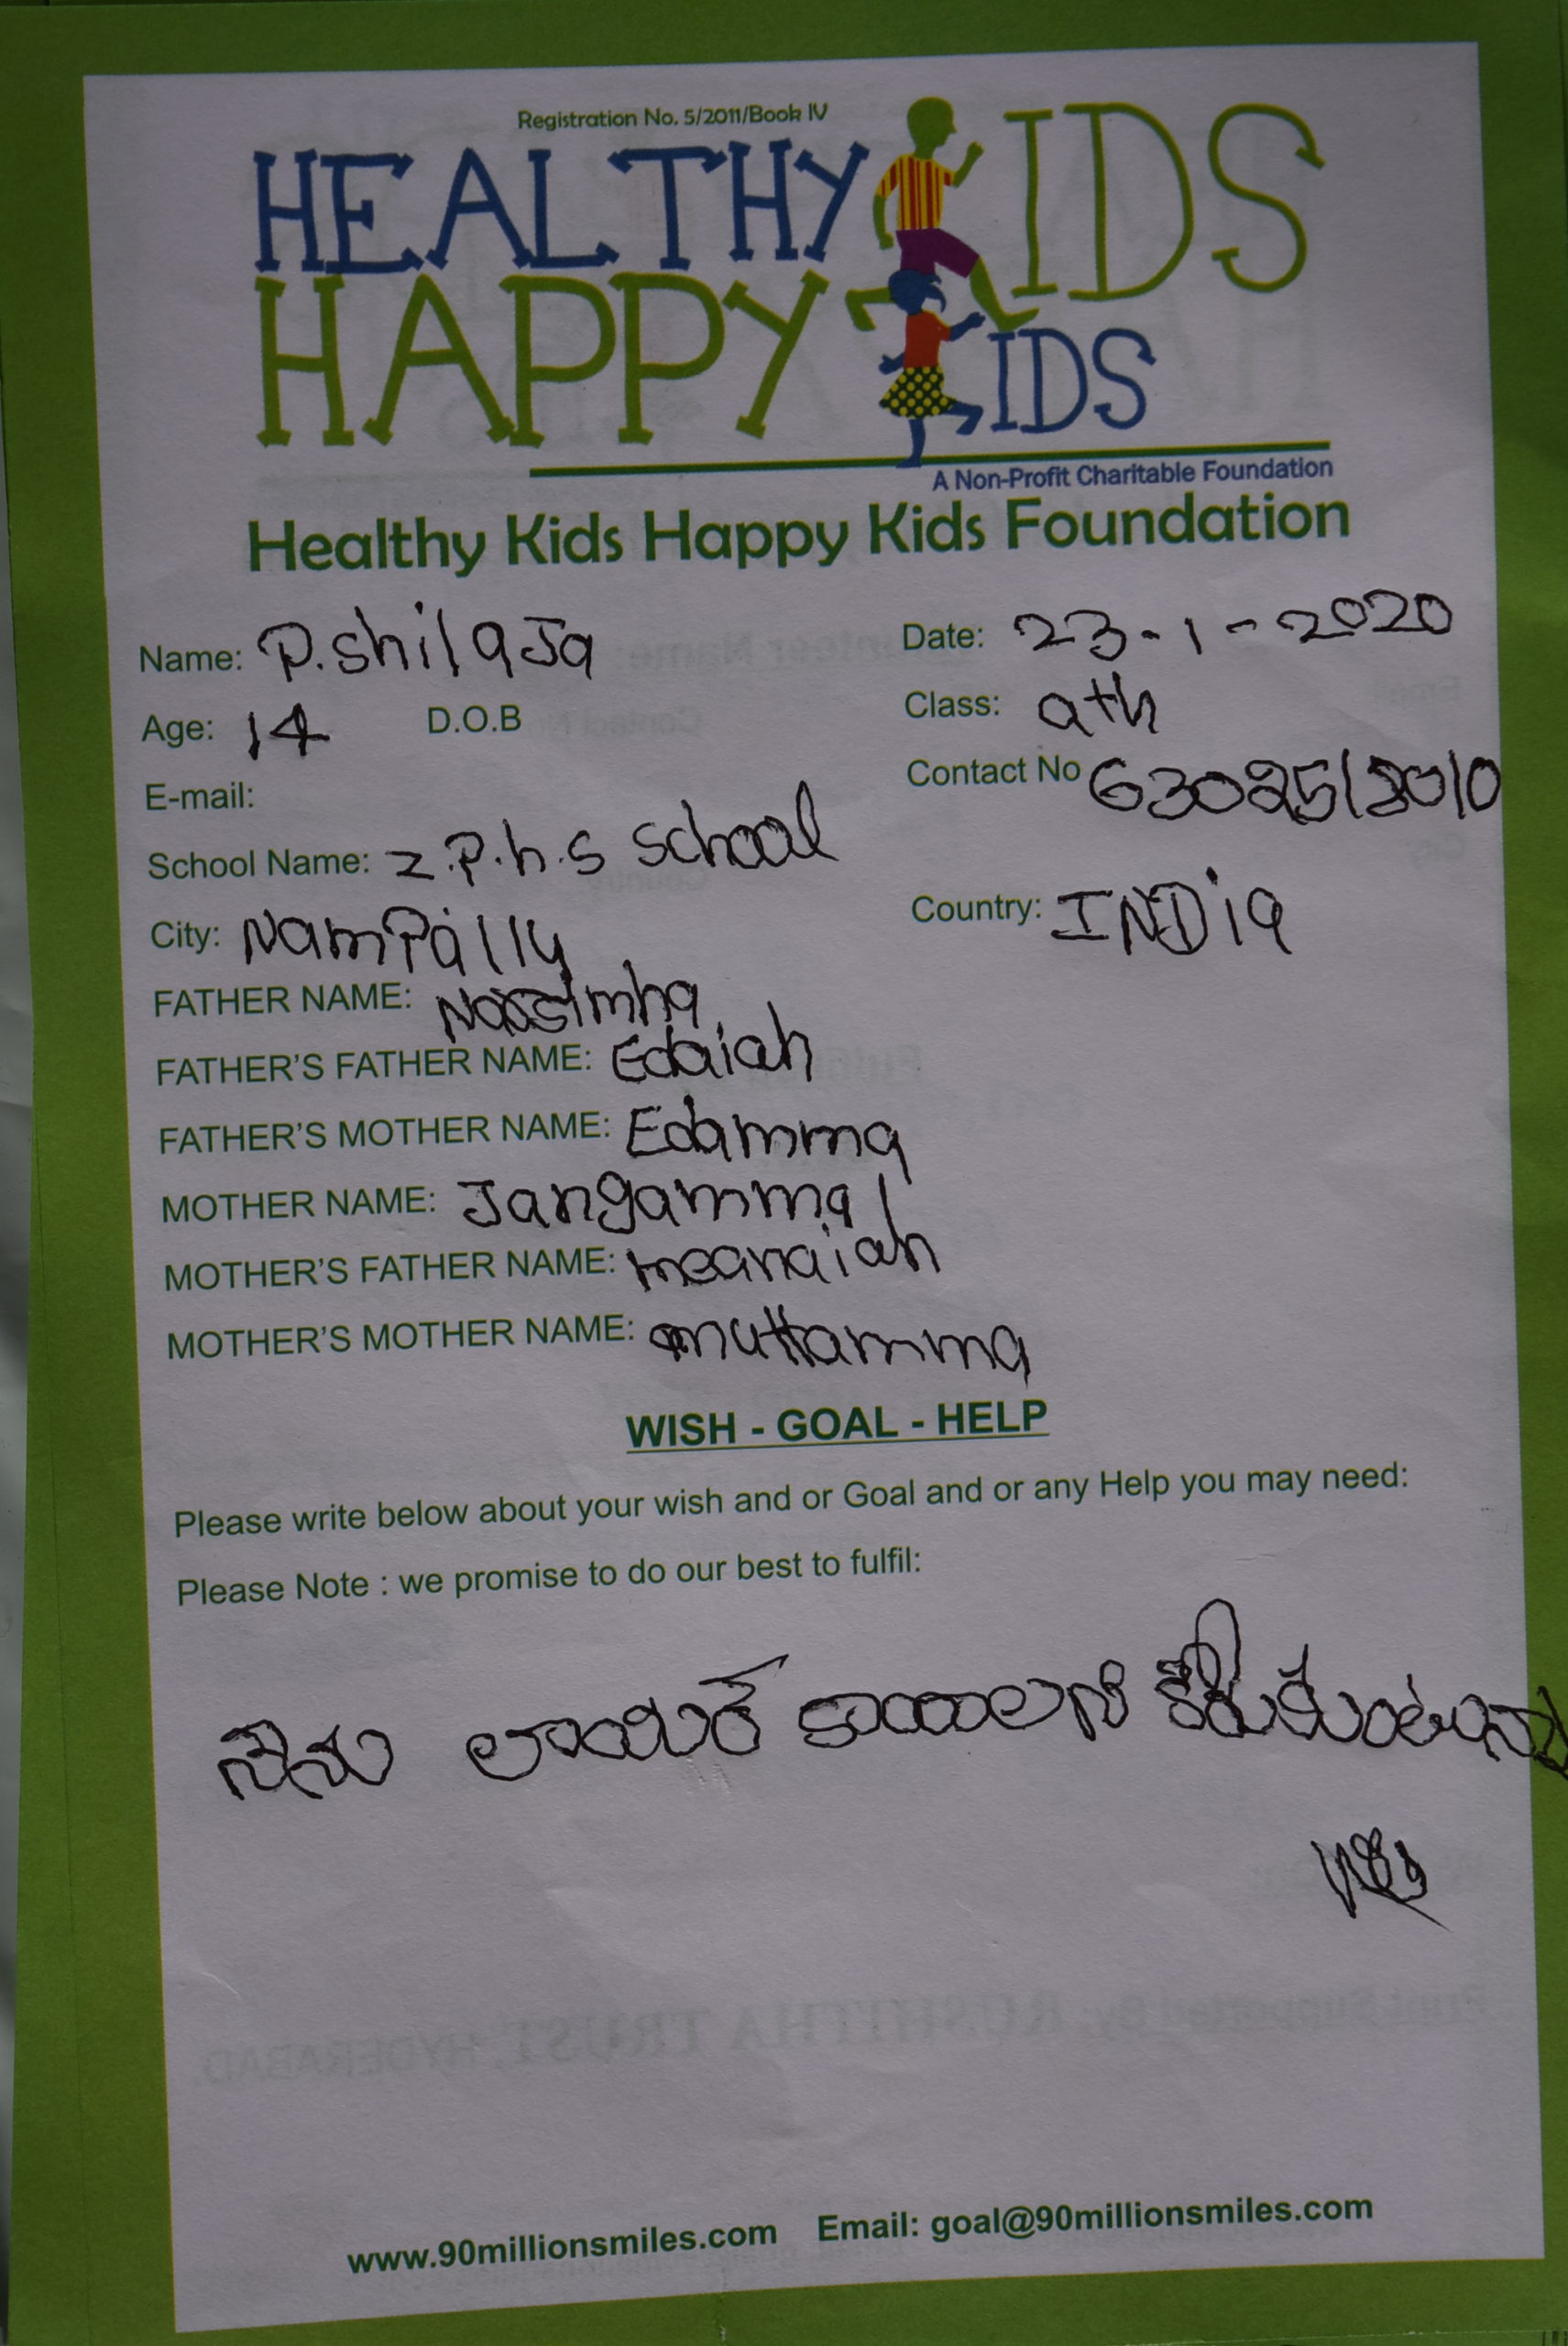 Registration No. 5/2011/Book IV
HEALTHY KIDS
HAPPY KIDS
A Non-Profit Charitable Foundation
Healthy Kids Happy Kids Foundation
Name: P.shilaJa Date: 23-1-2020
Age: 14 D.O.B Class: 9th
E-mail: Contact No
School Name: Z.P.h.S School
City: NamPally Country: INDia
FATHER NAME: Narsimha
FATHER'S FATHER NAME: Edaiah
FATHER'S MOTHER NAME: Edamma
MOTHER NAME: Jangamma
MOTHER'S FATHER NAME:
MOTHER'S MOTHER NAME: muttamma
WISH - GOAL - HELP
Please write below about your wish and or Goal and or any Help you may need:
Please Note : we promise to do our best to fulfil:
నేను లాయర్ కావాలని కోరుకుంటున్నా
www.90millionsmiles.com Email: goal@90millionsmiles.com